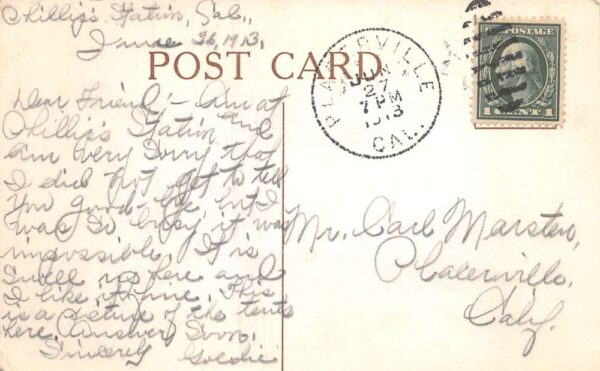 Phillips Station, Cal.,
June 26, 1913,
POST CARD
PLACERVILLE
JUN
27
7 PM
1913
CAL.
U.S. POSTAGE
1 CENT 1
Dear Friend:- Am at
Phillips Station and
am very sorry that
I did not get to tell
you good-bye but I
was so busy it was
impossible. It is
swell up here and
I like it fine. This
is a picture of the tents
here. Answer soon,
Sincerely Goldie
Mr. Carl Marsten,
Placerville,
Calif.